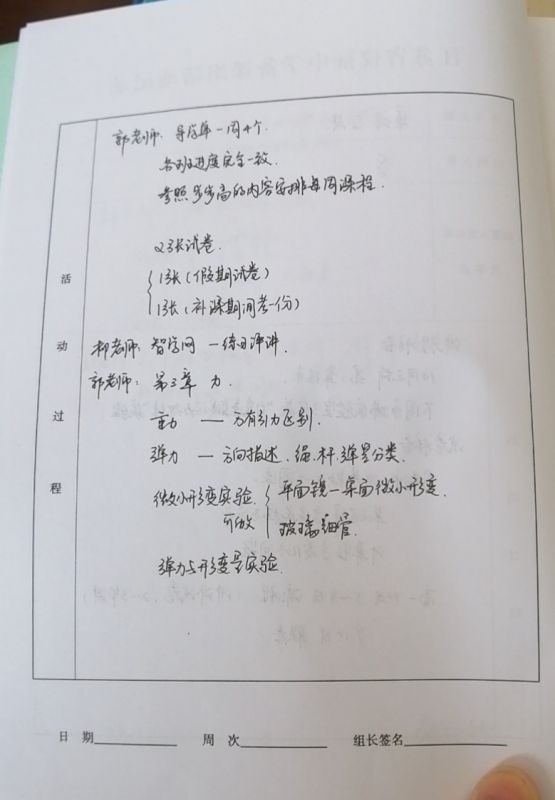 郭老师: 导学单一周4个.
各班进度完全一致.
参照步步高的内容安排每周课程.
2张试卷.
1张(假期试卷)
1张(补课期间考一份)
活动过程
柳老师: 智学网 一练习评讲.
郭老师: 第3章 力.
重力 — 万有引力区别.
弹力 — 方向描述. 绳. 杆. 弹簧分类.
微小形变实验. 平面镜—桌面微小形变.
可做 玻璃细管.
弹力与形变量实验.
日 期 周 次 组长签名